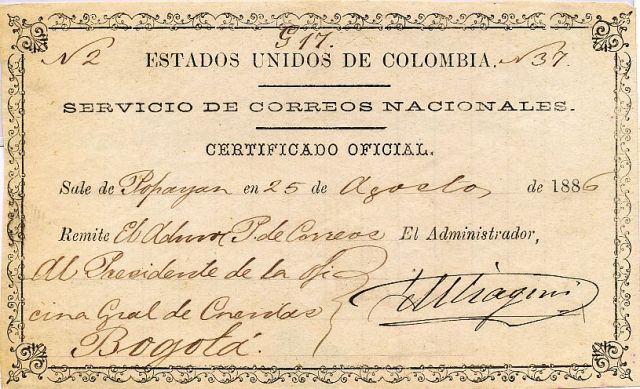 G 17.
N 2 ESTADOS UNIDOS DE COLOMBIA. N 37.
SERVICIO DE CORREOS NACIONALES.
CERTIFICADO OFICIAL.
Sale de Popayan en 25 de Agosto de 1886
Remite El Admor P. de Correos El Administrador,
Al Presidente de la ofi
cina Gral de Cuentas
Bogotá.